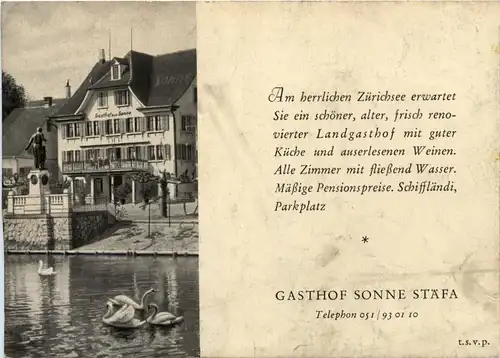 Gasthof zur Sonne
Am herrlichen Zürichsee erwartet
Sie ein schöner, alter, frisch reno-
vierter Landgasthof mit guter
Küche und auserlesenen Weinen.
Alle Zimmer mit fließend Wasser.
Mäßige Pensionspreise. Schiffländi,
Parkplatz
*
GASTHOF SONNE STÄFA
Telephon 051 / 93 01 10
t.s.v.p.